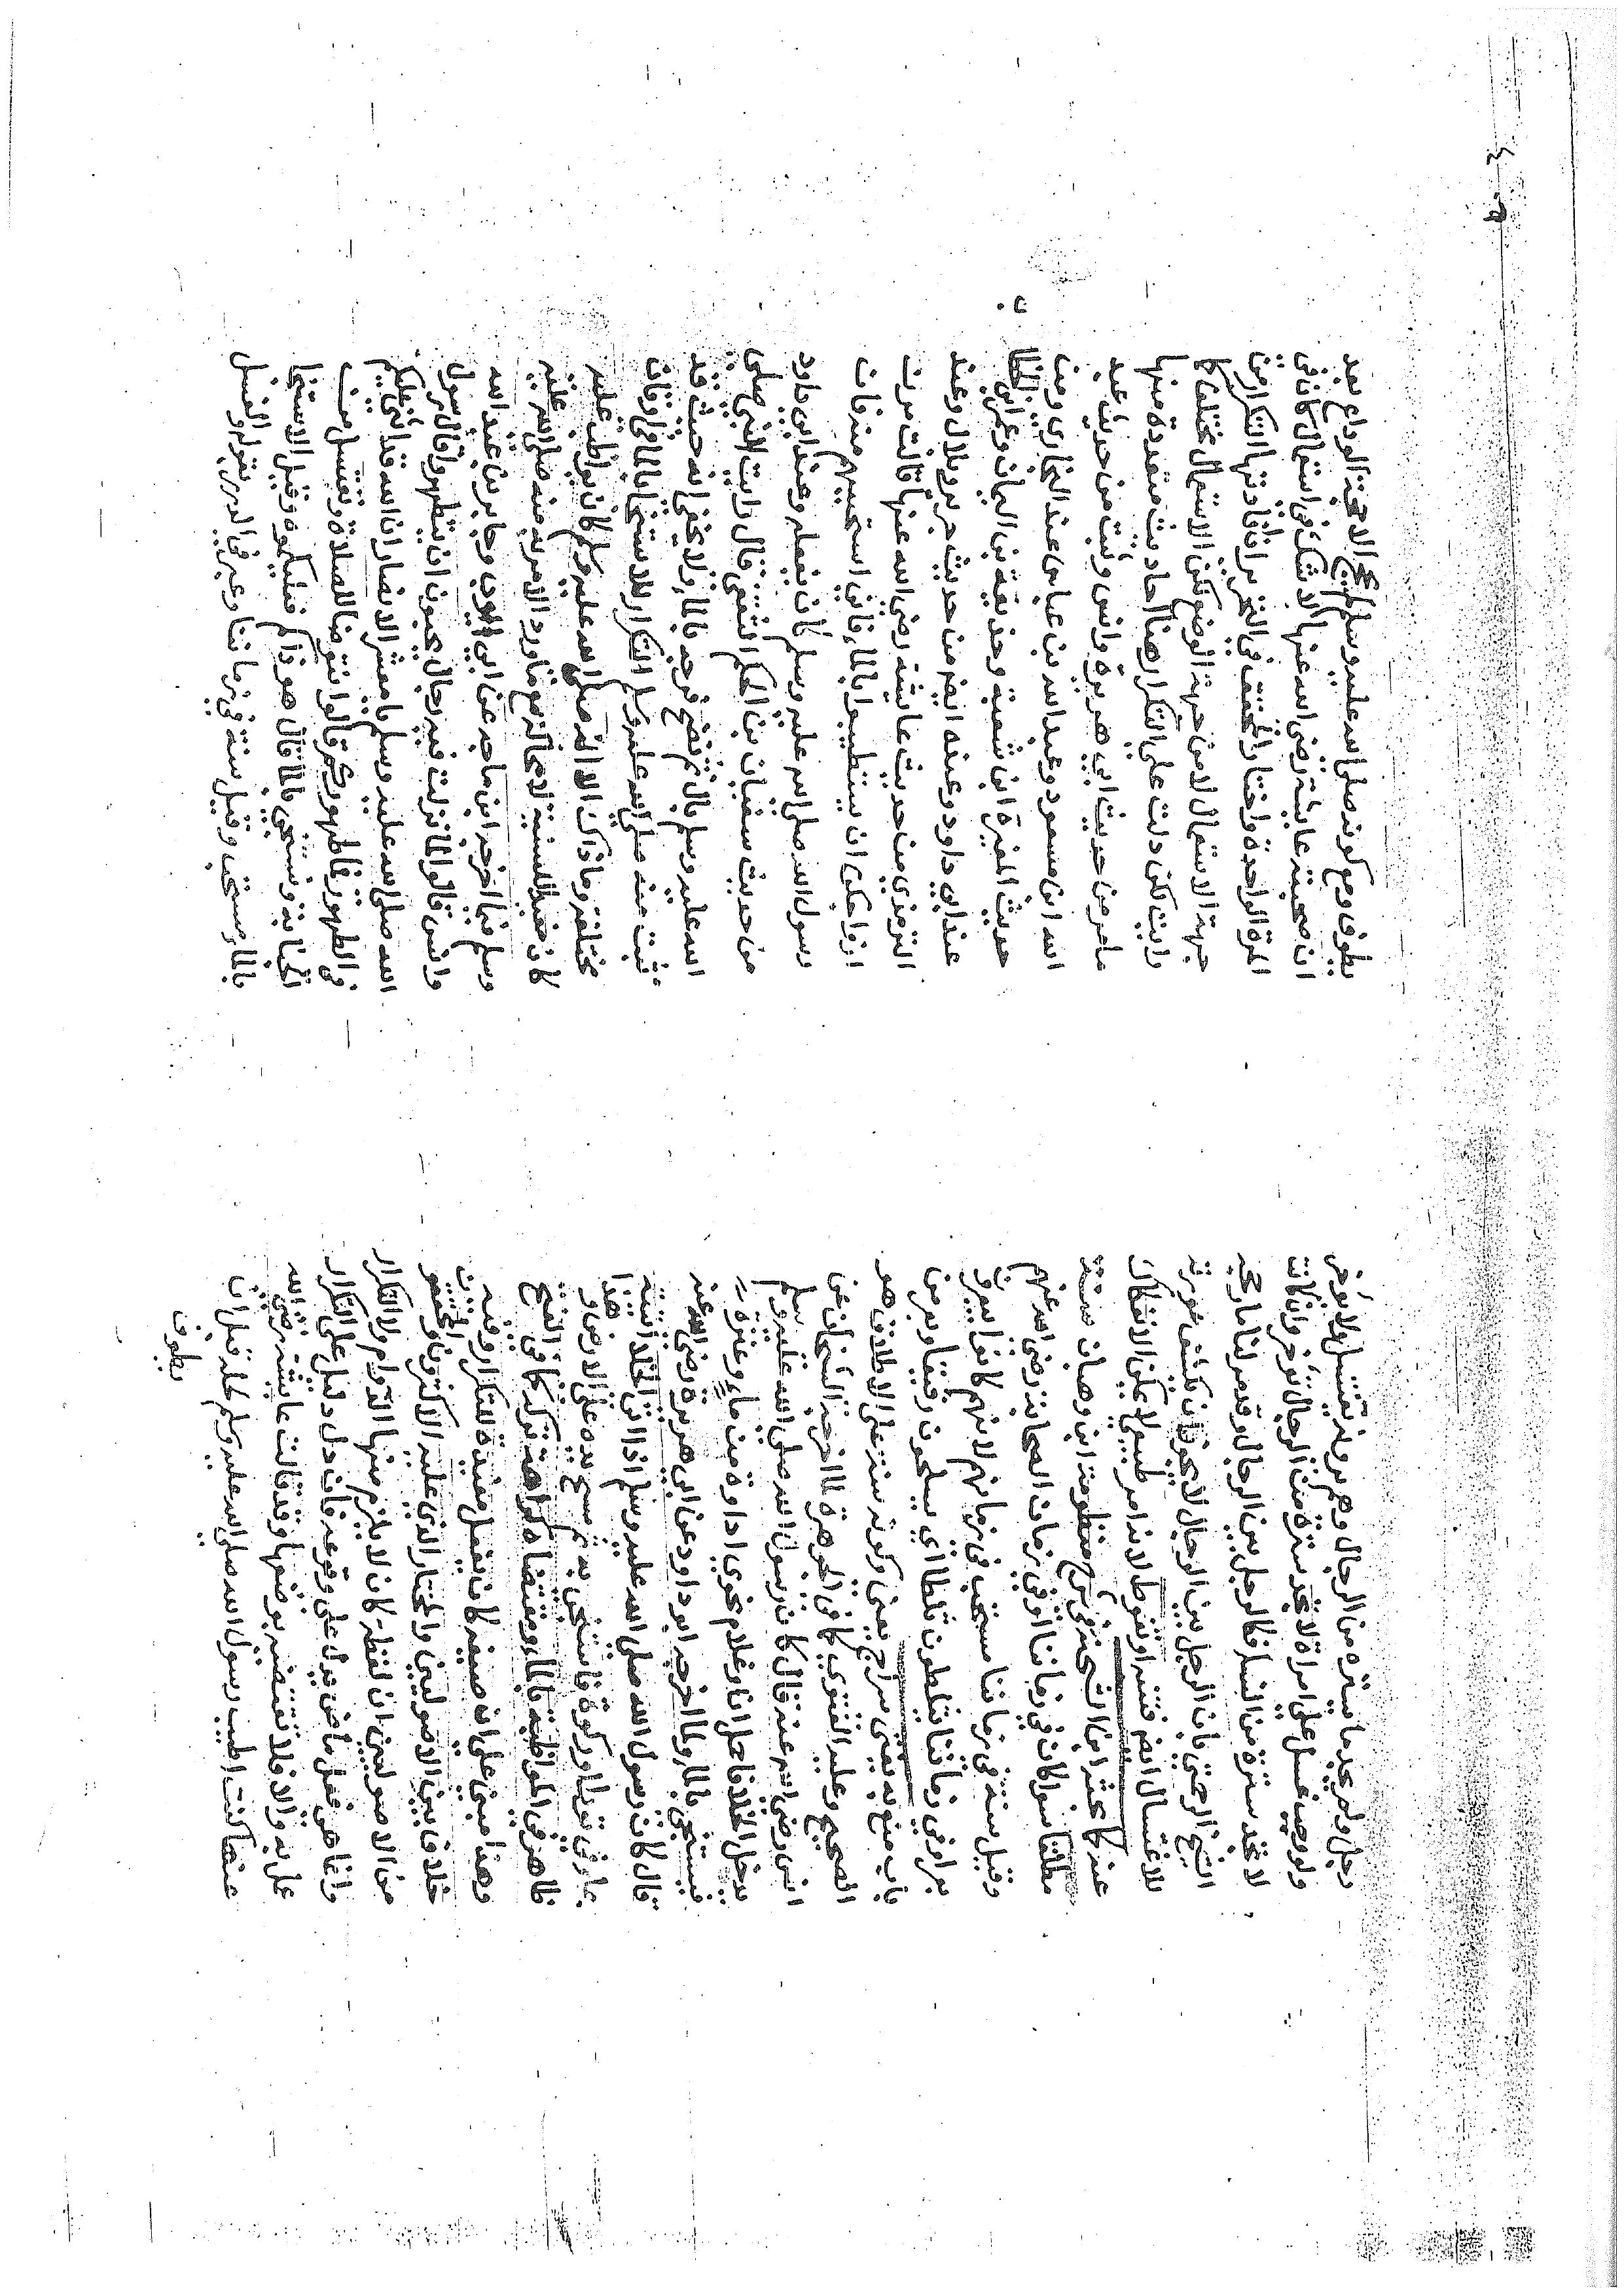 رجل ولم يجد ما يستره من الرجال وهم يرونه يغتسل ولا يؤخر
ولو وجب غسل على امراة لا تجد سترة من الرجال تؤخر وان كانت
لا تجد سترة من النساء فكالرجل بين الرجال وقدمر لنا ما رجحه
الشيخ الرحمتي بان الرجل بين الرجال لا يجوز ان يكشف عورته
للاغتسال او تغوط لانه امر طبيعي لا يمكن الانفكاك
عنه كما بحثه ابن الشحنه في شرح منظومة ابن وهبان سنة
مطلقا سوا كان في زماننا او في زمان الصحابة رضي الله عنهم
وقيل سنة في زماننا مستحب في زمانهم لانهم كانوا يبعرون
بعرا وفي زماننا يثلطون ثلطا اي يسلحون رقيقا وبعر من
باب منع به يفتى سراج يعني وكونه سنة على الاطلاق هو
الصحيح وعليه الفتوى كما في الجوهرة لما اخرجه الشيخان عن
انس رضي الله عنه قال كان رسول الله صلى الله عليه وسلم
يدخل الخلا فاحمل انا وغلام نحوي اداوة من ماء وعنزة
فيستنجي بالماء ولما اخرجه ابو داود عن ابي هريرة رضي الله عنه
قال كان رسول الله صلى الله عليه وسلم اذا اتى الخلا اتيته
بماء في تور او ركوة فاستنجى به ثم مسح يده على الارض وهذا
ظاهر في المواظبة بالماء ومقتضاه كراهة تركه كما في الفتح
وهذا مبني على ان صيغة كان يفعل مفيدة للتكرار وفيه
خلاف بين الاصوليين والمختار الذي عليه الاكثرون والمحققون
من الاصوليين ان لفظة كان لا يلزم منها الدوام ولا التكرار
وانما هي فعل ماض يدل على وقوعه فان دل دليل على التكرار
عمل به والا فلا تقتضيه بوضعها وقد قالت عايشة رضي الله
عنها كنت اطيب رسول الله صلى الله عليه وسلم لحله قبل ان
يطوف
يطوف ومع كونه صلى الله عليه وسلم لم يحج الا حجة الوداع بعد
ان صحبته عايشة رضي الله عنها لا شك في استعمال كان في
المرة الواحدة واختار المحقق في التحرير افادتها التكرار من
جهة الاستعمال لا من جهة الوضع لكن الاستعمال مختلف كما
رايت لكن دلت على التكرار هنا احاديث متعددة منها
ما مر من حديث ابي هريرة وانس وثبت من حديث عبد
الله ابن مسعود وعبد الله بن عباس عند البخاري ومن
حديث المغيرة ابن شعبة وحذيفة بن اليمان وعمر بن الخطاب
عند ابي داود وعنده ايضا من حديث جرير وبلال وعند
الترمذي من حديث عايشة رضي الله عنها قالت مرن
ازواجكن ان يستطيبوا بالماء فاني استحييهم منه فان
رسول الله صلى الله عليه وسلم كان يفعله وعند ابي داود
من حديث سفيان بن الحكم الثقفي قال رايت النبي صلى
الله عليه وسلم بال ثم نضح فرجه بالماء ولا يخفى انه حيث قد
ثبت عنه صلى الله عليه وسلم التكرار للاستنجاء بالماء في اوقات
مختلفة وما ذاك الا انه صلى الله عليه وسلم كان يواظب عليه
كان مفيدا للسنية لا محالة مع ما ورد الامر به منه صلى الله عليه
وسلم فيما اخرجه ابن ماجه عن ابي ايوب وجابر بن عبد الله
وانس قالوا لما نزلت فيه رجال يحبون ان يتطهروا قال رسول
الله صلى الله عليه وسلم يا معشر الانصار ان الله قد اثنى عليكم
في الطهور فما طهوركم قالوا نتوضا للصلاة ونغتسل من
الجنابة ونستنجي بالماء قال هو ذاكم فعليكموه وقيل الاستنجا
بالماء مستحب وقيل سنة في زماننا وعبر في الدرر بقوله والغسل